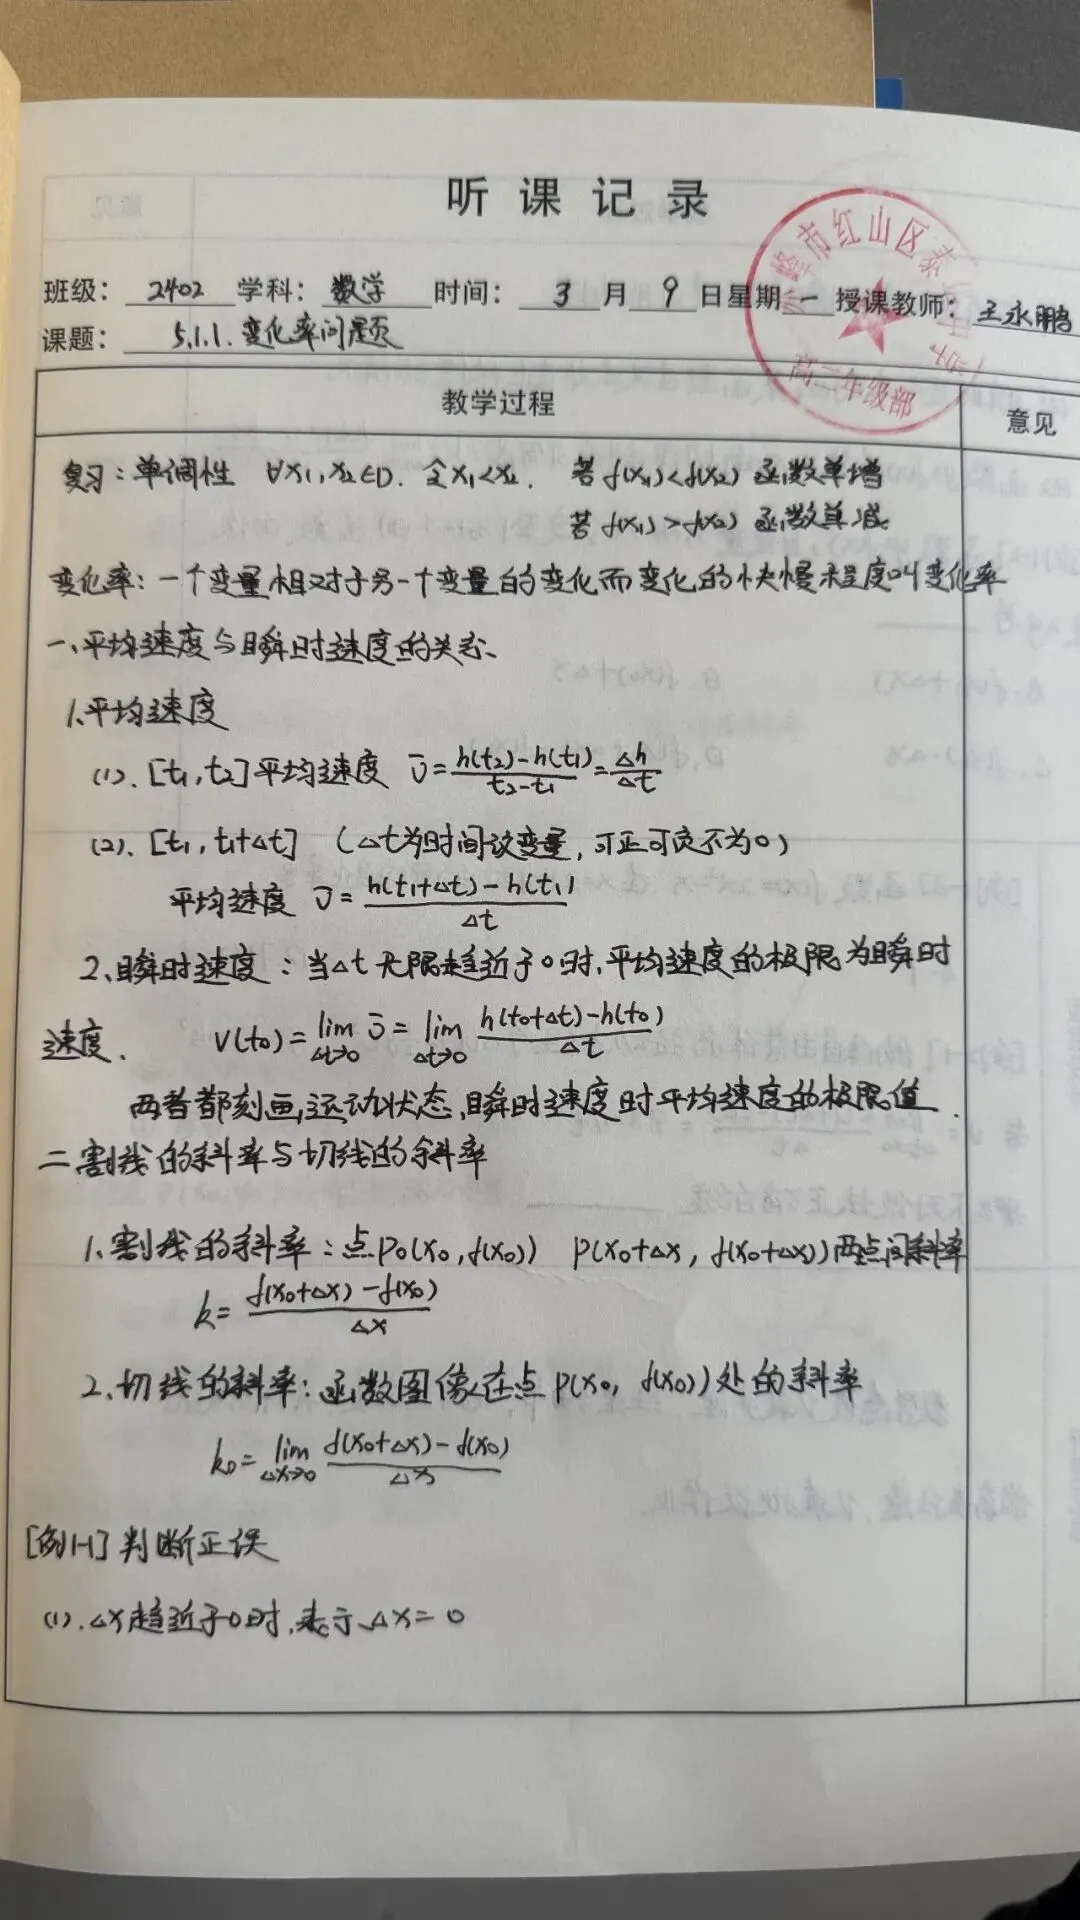 听课记录
班级：2402 学科：数学 时间：3月9日星期一 授课教师：王永鹏
课题：5.1.1.变化率问题
教学过程 意见
复习：单调性 ∀x₁,x₂∈D. 令x₁<x₂. 若f(x₁)<f(x₂) 函数单增
若f(x₁)>f(x₂) 函数单减
变化率：一个变量相对于另一个变量的变化而变化的快慢程度叫变化率
一、平均速度与瞬时速度的关系、
1、平均速度
(1). [t₁,t₂]平均速度 v̄=(h(t₂)-h(t₁))/(t₂-t₁)=Δh/Δt
(2). [t₁, t₁+Δt] (Δt为时间改变量, 可正可负不为0)
平均速度 v̄=(h(t₁+Δt)-h(t₁))/Δt
2、瞬时速度：当Δt无限趋近于0时,平均速度的极限为瞬时
速度. v(t₀)=lim Δt→0 v̄=lim Δt→0 (h(t₀+Δt)-h(t₀))/Δt
两者都刻画运动状态,瞬时速度时平均速度的极限值.
二割线的斜率与切线的斜率
1、割线的斜率：点P₀(x₀,f(x₀)) P(x₀+Δx, f(x₀+Δx))两点间斜率
k=(f(x₀+Δx)-f(x₀))/Δx
2、切线的斜率：函数图像在点P(x₀, f(x₀))处的斜率
k₀=lim Δx→0 (f(x₀+Δx)-f(x₀))/Δx
[例1-1] 判断正误
(1).Δx趋近于0时,表示Δx=0
市红山区
高二年级部